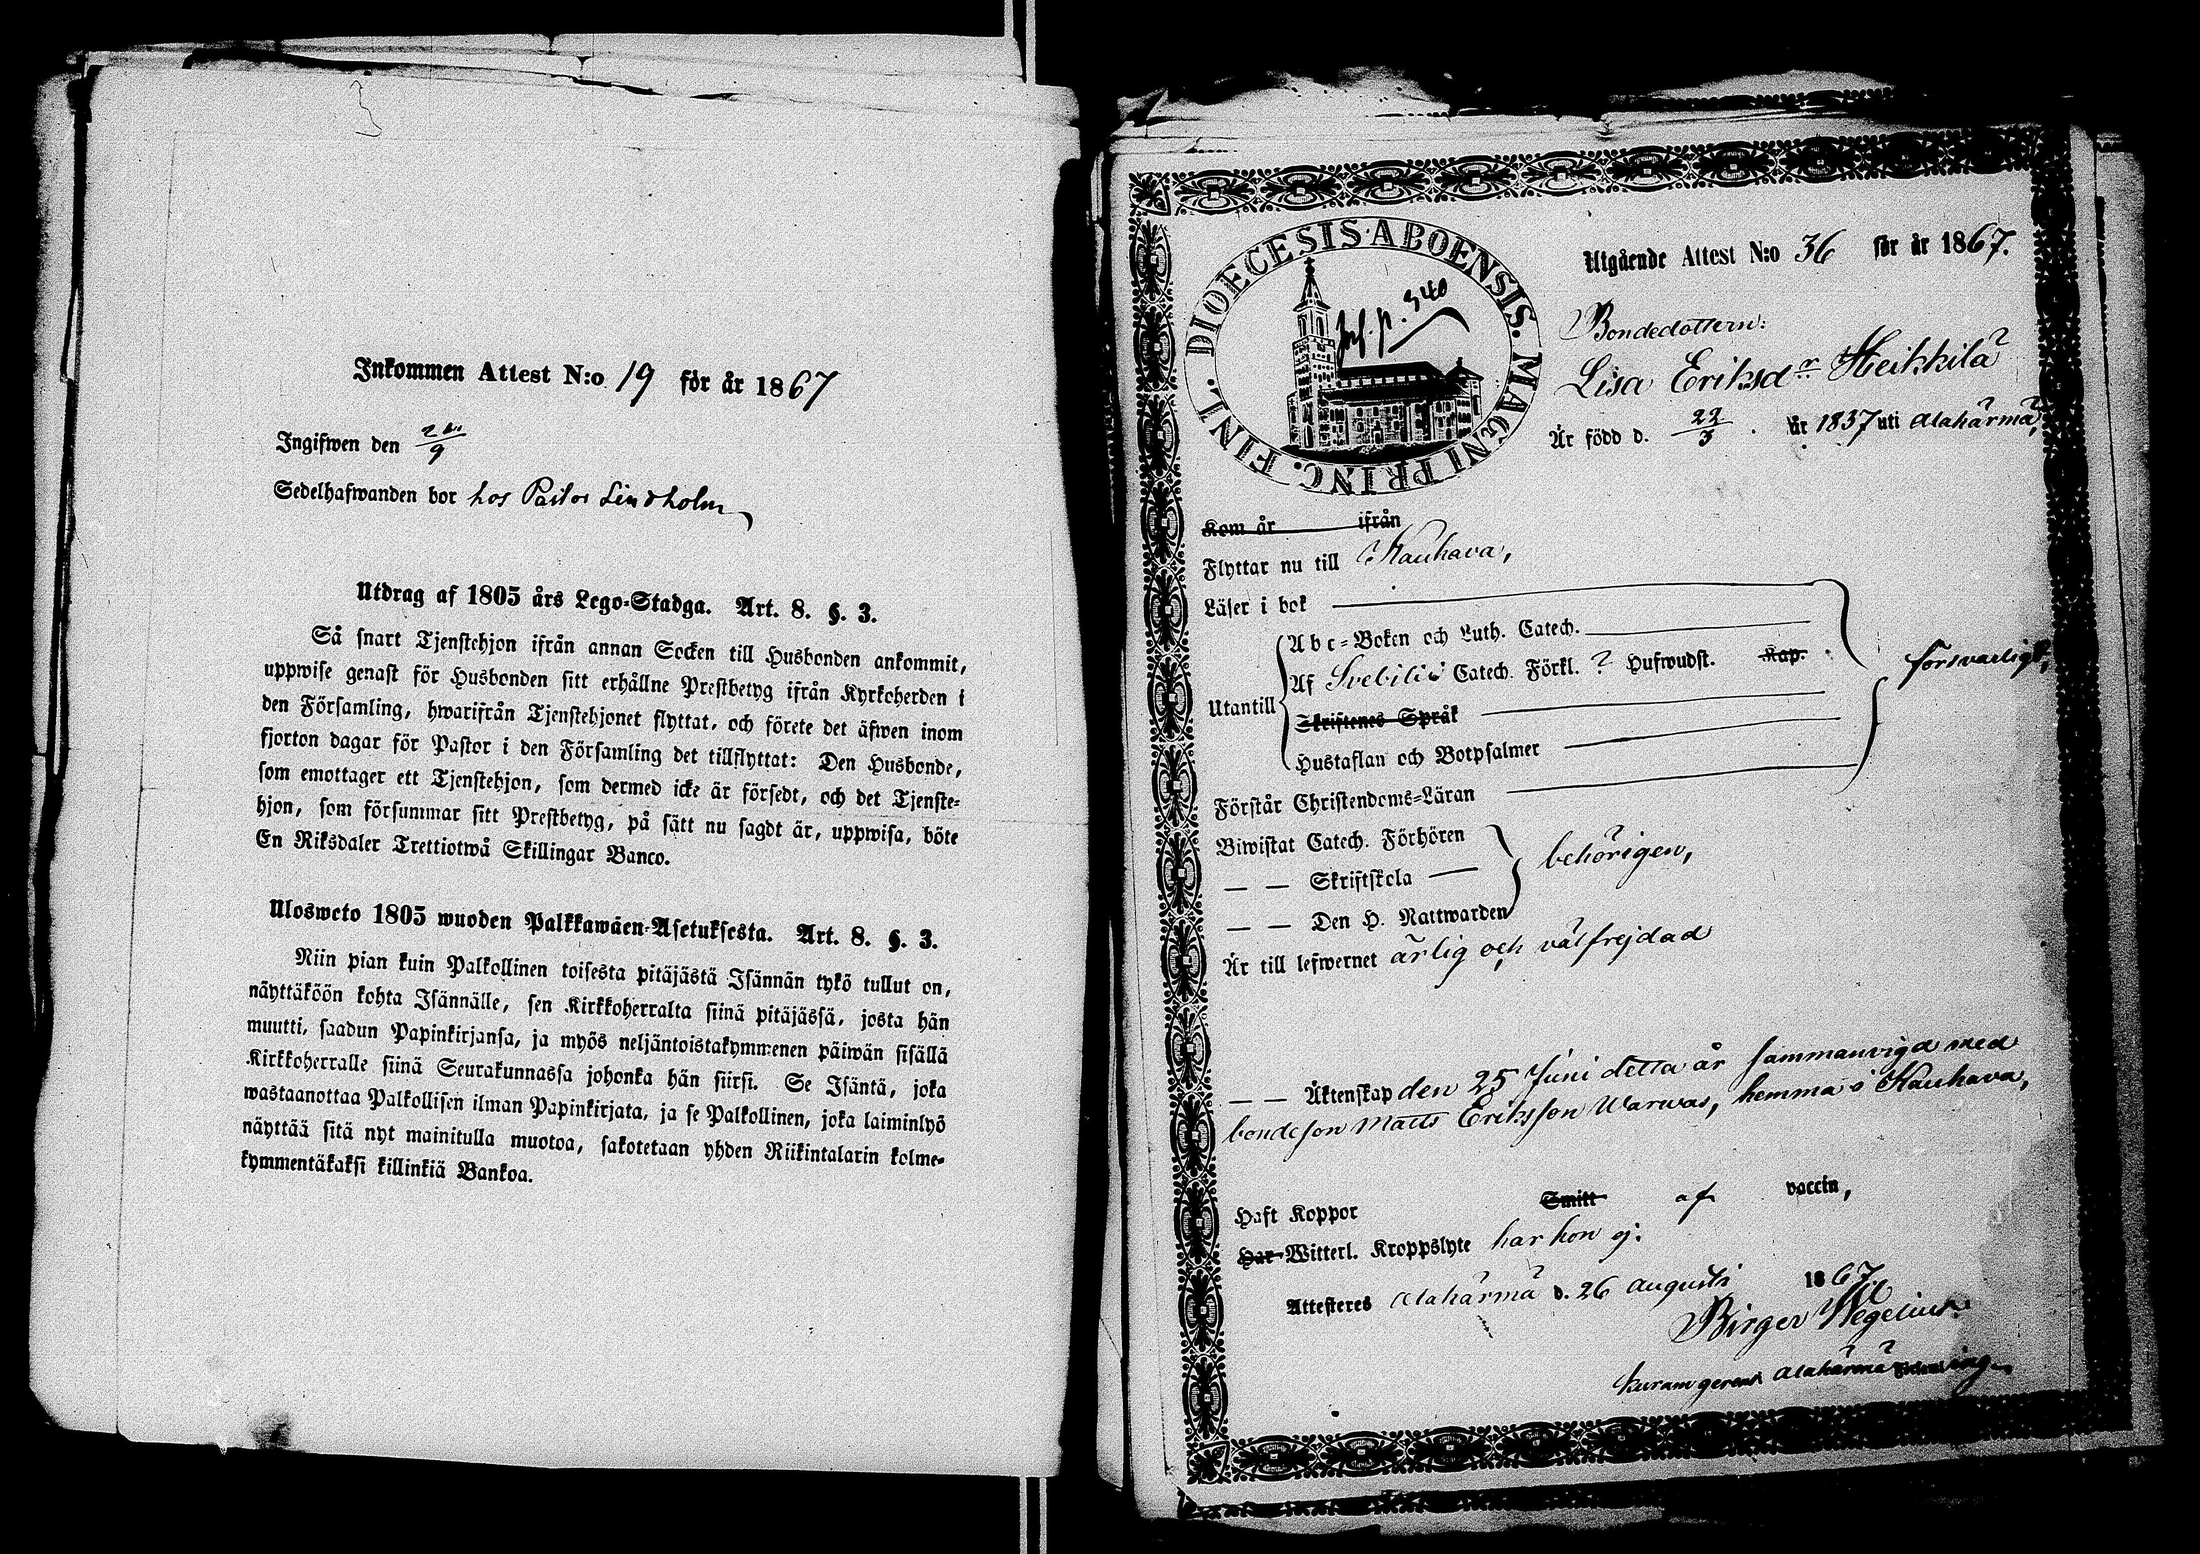 Inkommen Attest N:o 19 för år 1867
Ingifwen den
Sedelhafwanden bor hos Pastor Lindholm
Utdrag af 1805 års Lego-Stadga. Art. 8. §. 3.
Så snart Tjenstehjon ifrån annan Socken till Husbonden ankommit,
uppwise genast för Husbonden sitt erhållne Prestbetyg ifrån Kyrkoherden i
den Församling, hwarifrån Tjenstehjonet flyttat, och förete det äfwen inom
fjorton dagar för Pastor i den Församling det tillflyttat: Den Husbonde,
som emottager ett Tjenstehjon, som dermed icke är försedt, och det Tjenste-
hjon, som försummar sitt Prestbetyg, på sätt nu sagdt är, uppwisa, böte
En Riksdaler Trettiotwå Skillingar Banco.
Ulosweto 1805 wuoden Palkkawäen-Asetuksesta. Art. 8. §. 3.
Niin pian kuin Palkollinen toisesta pitäjästä Isännän tykö tullut on,
näyttäköön kohta Isännälle, sen Kirkkoherralta siinä pitäjässä, josta hän
muutti, saadun Papinkirjansa, ja myös neljäntoistakymmenen päiwän sisällä
Kirkkoherralle siinä Seurakunnassa johonka hän siirsi. Se Isäntä, joka
wastaanottaa Palkollisen ilman Papinkirjata, ja se Palkollinen, joka laiminlyö
näyttää sitä nyt mainitulla muotoa, sakotetaan yhden Riikintalarin kolme-
kymmentäkaksi killinkiä Bankoa.
DIOECESIS ABOENSIS. MAGNI PRINC. FINL.
Inf. p. 340
Utgående Attest N:o 36 för år 1867.
Bondedottern:
Lisa Eriksdr Heikkilä
Är född d. 22/3 år 1837 uti Alahärmä,
Kom år ifrån
Flyttar nu till Kauhava,
Läser i bok
Utantill
Abc-Boken och Luth. Catech.
Af Svebilii Catech. Förkl. ? Hufwudst. Kap.
Skriftenes Språk
Hustaflan och Botpsalmer
försvarligt,
Förstår Christendoms-Läran
Biwistat Catech. Förhören
— — Skriftskola
— — Den H. Nattwarden
behörigen,
Är till lefwernet ärlig och välfrejdad
— — Äktenskap den 25 Juni detta år sammanvigd med
bondeson Matts Eriksson Warwas, hemma i Kauhava,
Haft Koppor Smitt af vaccin,
Har Witterl. Kroppslyte har hon ej.
Attesteres Alahärmä d. 26 Augusti 1867
Birger Wegelius
Alahärmä